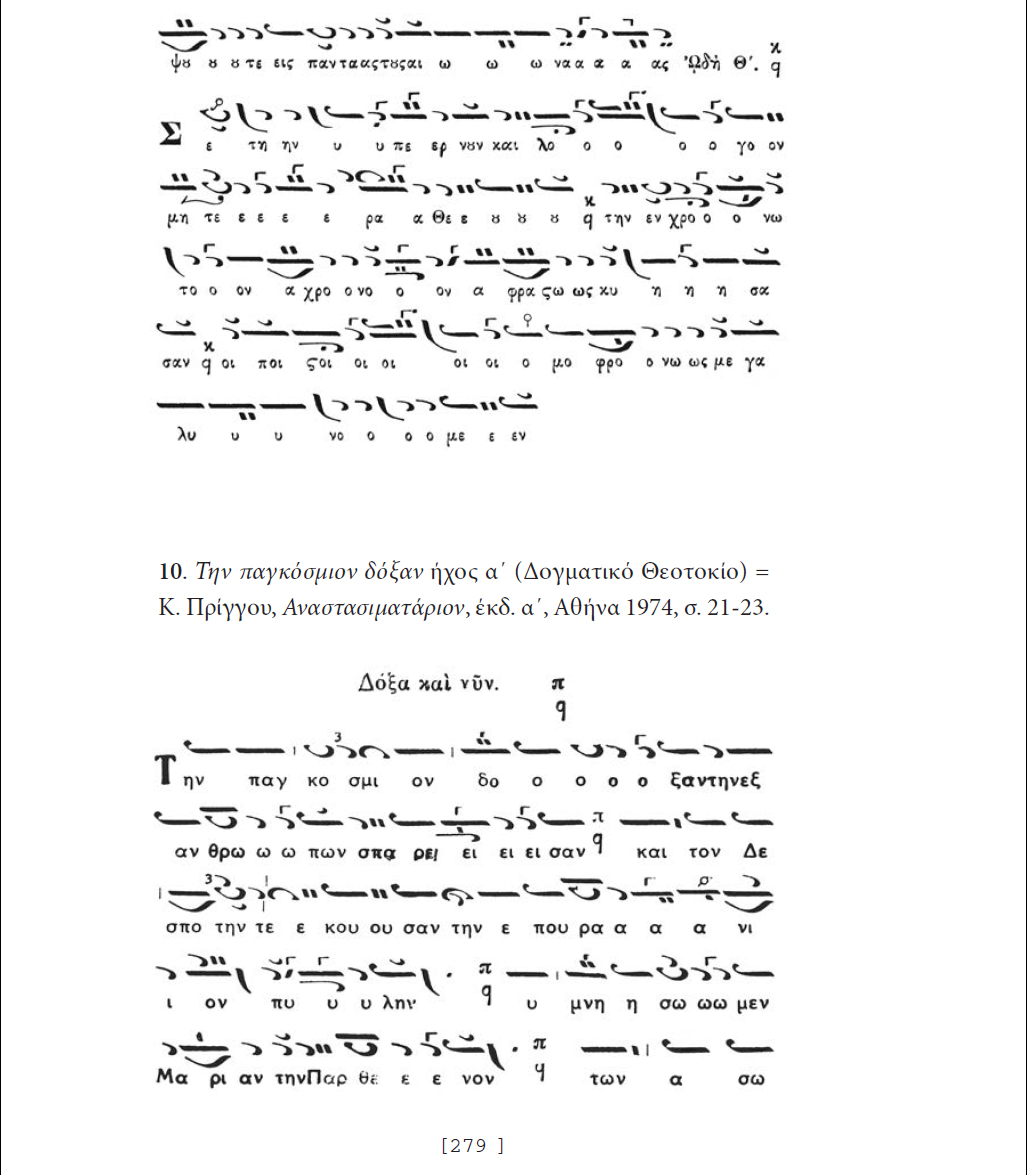 ψȣ ȣ ȣ τε εις παντααςτȣςαι ω ω ω ναα α α α ας ᾨδὴ Θʹ. ϰ q
Σ ε τη ην υ υ πε ερ νȣν και λο ο ο ο ο γο ον
μη τε ε ε ε ε ρα α Θε ε ȣ ȣ ȣ ϰ q την εν χρο ο ο νω
το ο ον α χρο ο νο ο ον α φρα ϛω ως κυ η η η σα
σαν ϰ q οι ποι ϛοι οι οι οι οι ο μο φρο ο νω ως με γα
λυ υ υ νο ο ο ο με ε εν
10. Την παγκόσμιον δόξαν ήχος α΄ (Δογματικό Θεοτοκίο) =
Κ. Πρίγγου, Αναστασιματάριον, έκδ. α΄, Αθήνα 1974, σ. 21-23.
Δόξα καὶ νῦν. π q
Την παγ κο σμι ον δο ο ο ο ο ξαντηνεξ
αν θρω ω ω πων σπα ρει ει ει ει σαν π q και τον Δε
σπο την τε ε κου ου σαν την ε που ρα α α α νι
ι ον πυ υ υ λην π q υ μνη η σω ωω μεν
Μα ρι αν τηνΠαρ θε ε ε νον π q των α σω
[279 ]